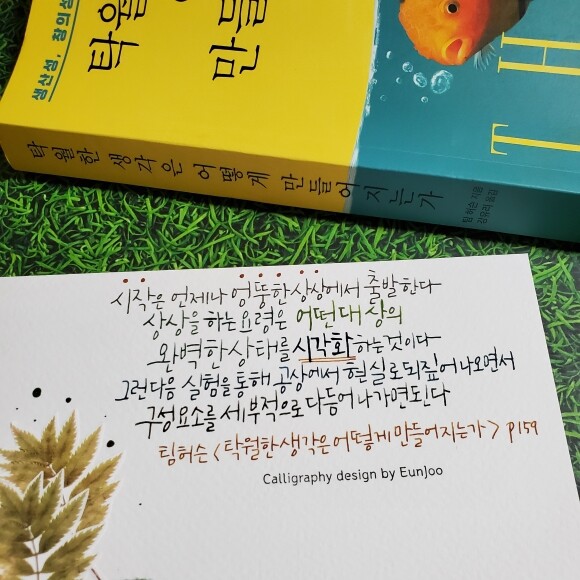 생산성, 창의성
탁월
만들
T H
탁월한 생각은 어떻게 만들어지는가
팀 허슨 지음
강유리 옮김
시작은 언제나 엉뚱한 상상에서 출발한다
상상을 하는 요령은 어떤 대상의
완벽한 상태를 시각화하는 것이다
그런다음 실험을 통해 공상에서 현실로 되짚어 나오면서
구성요소를 세부적으로 다듬어 나가면 된다
팀허슨 <탁월한 생각은 어떻게 만들어지는가> p159
Calligraphy design by EunJoo